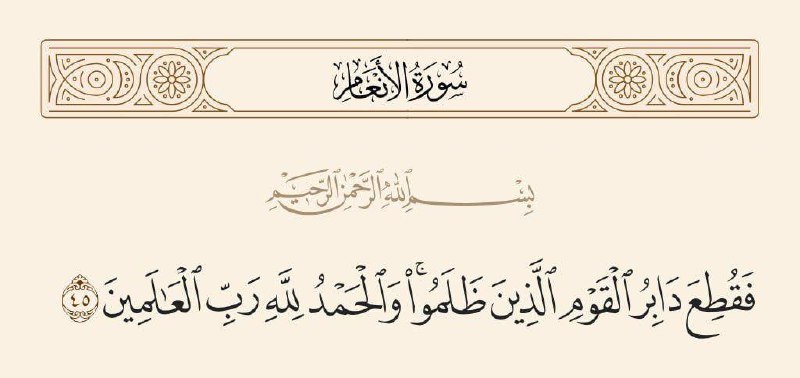 سُورَةُ الأَنْعَامِ
بِسْمِ ٱللَّهِ ٱلرَّحْمَٰنِ ٱلرَّحِيمِ
فَقُطِعَ دَابِرُ ٱلْقَوْمِ ٱلَّذِينَ ظَلَمُوا۟ ۚ وَٱلْحَمْدُ لِلَّهِ رَبِّ ٱلْعَٰلَمِينَ ٤٥